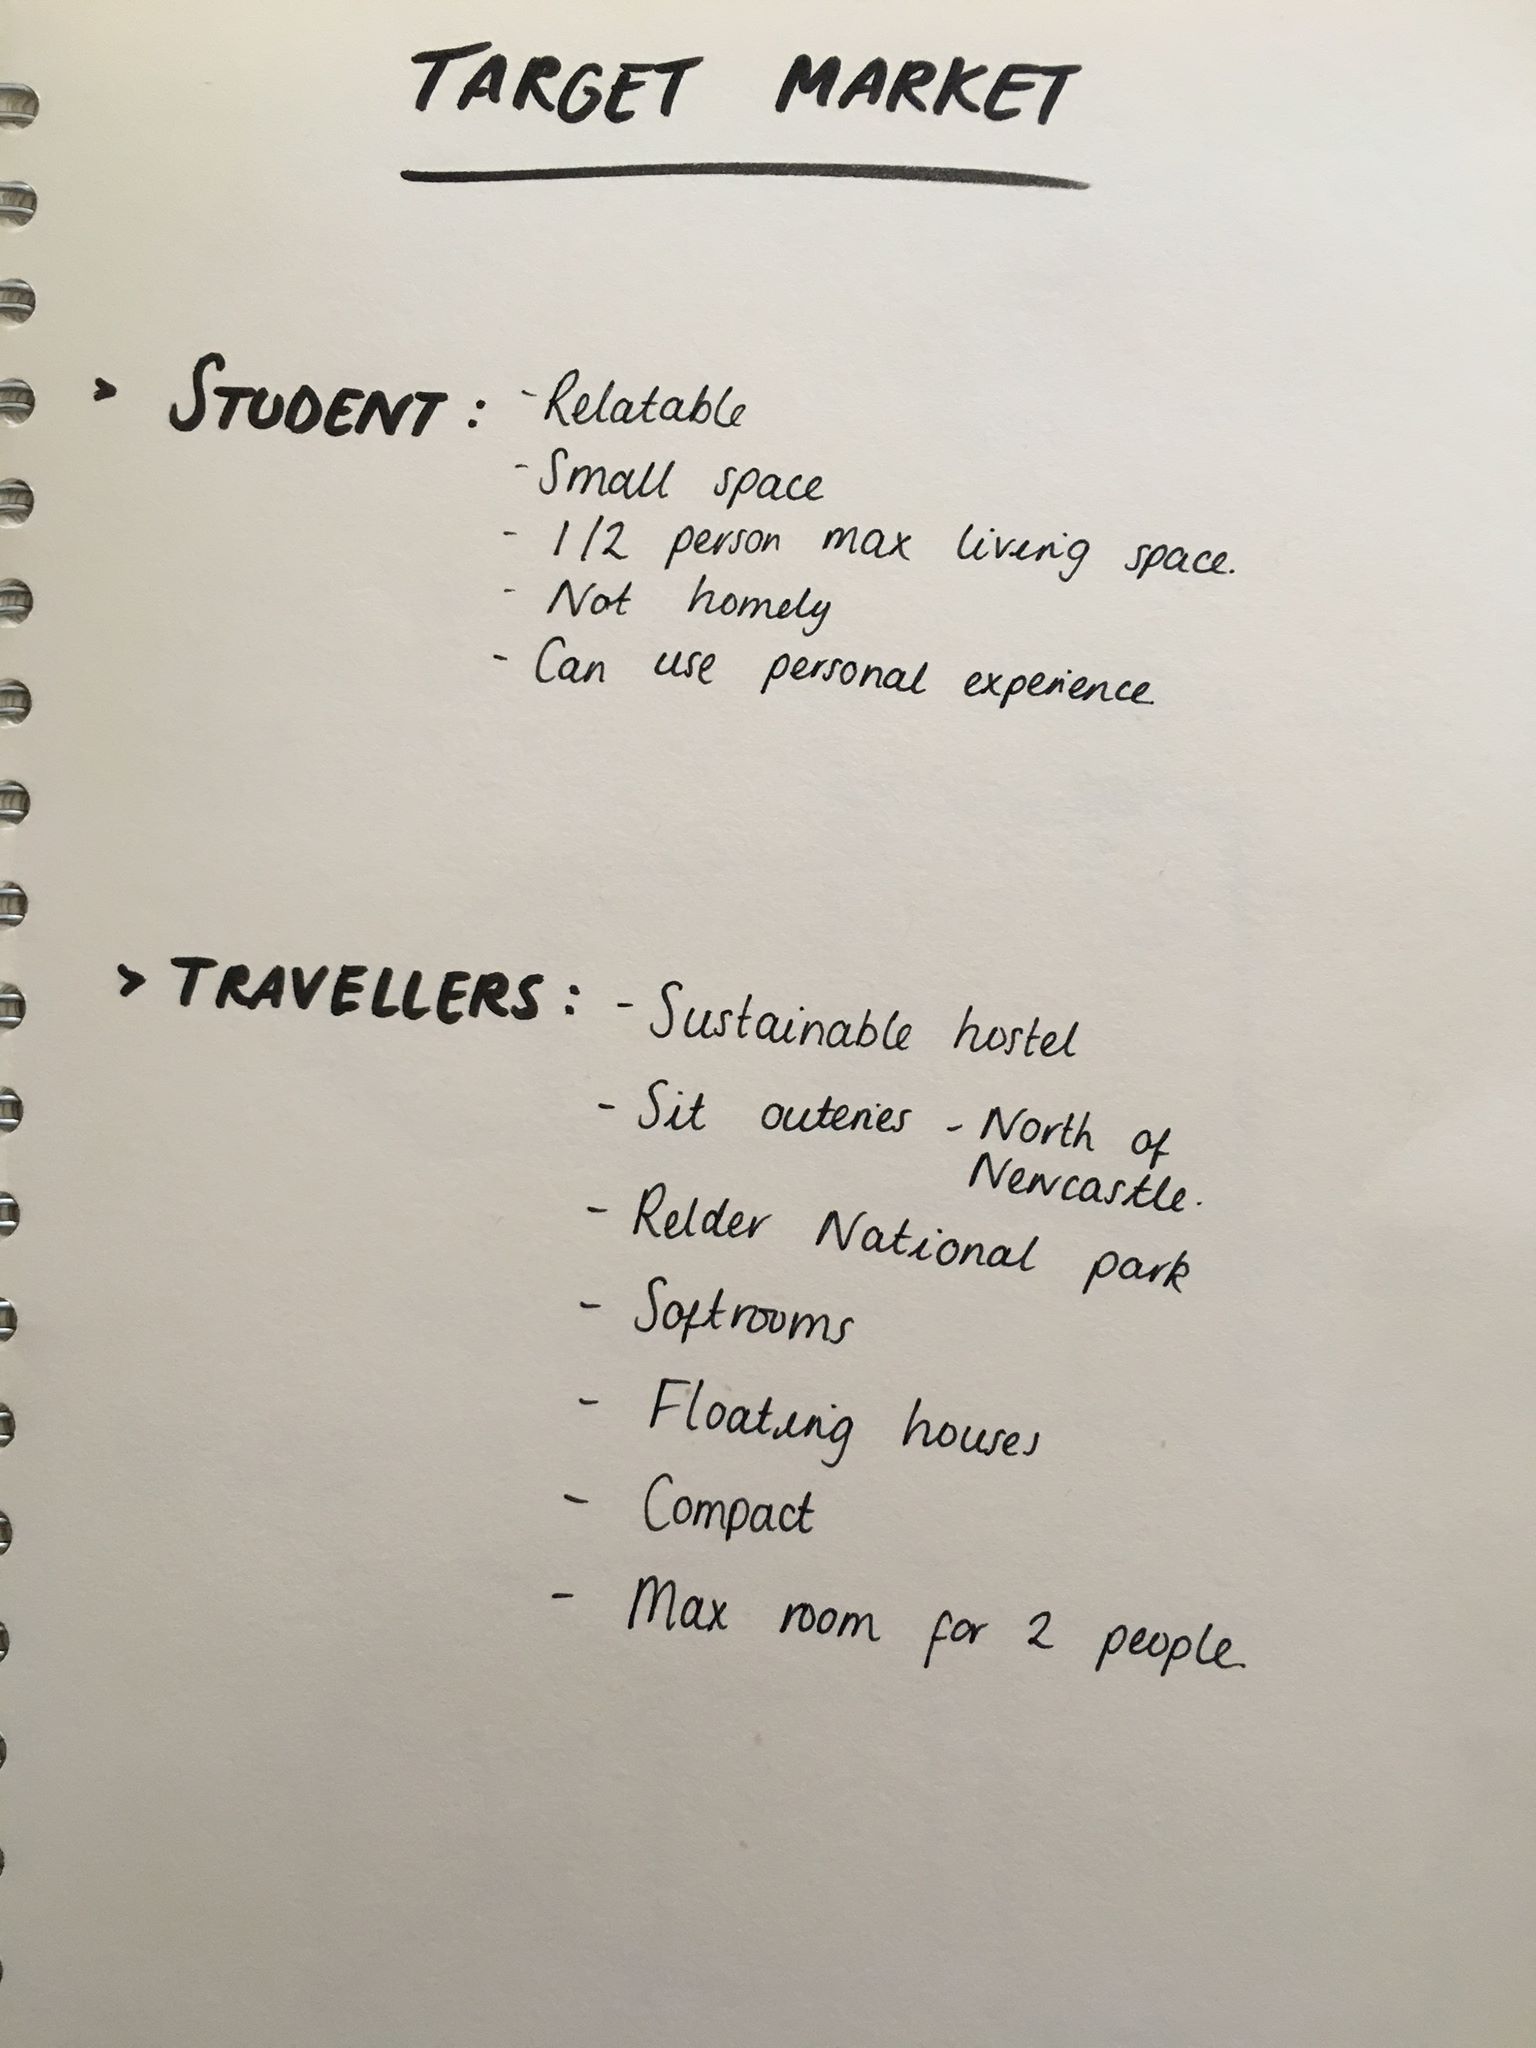 TARGET MARKET
> STUDENT : - Relatable
- Small space
- 1/2 person max living space.
- Not homely
- Can use personal experience
> TRAVELLERS : - Sustainable hostel
- Sit outeries - North of
Newcastle.
- Relder National park
- Softrooms
- Floating houses
- Compact
- Max room for 2 people